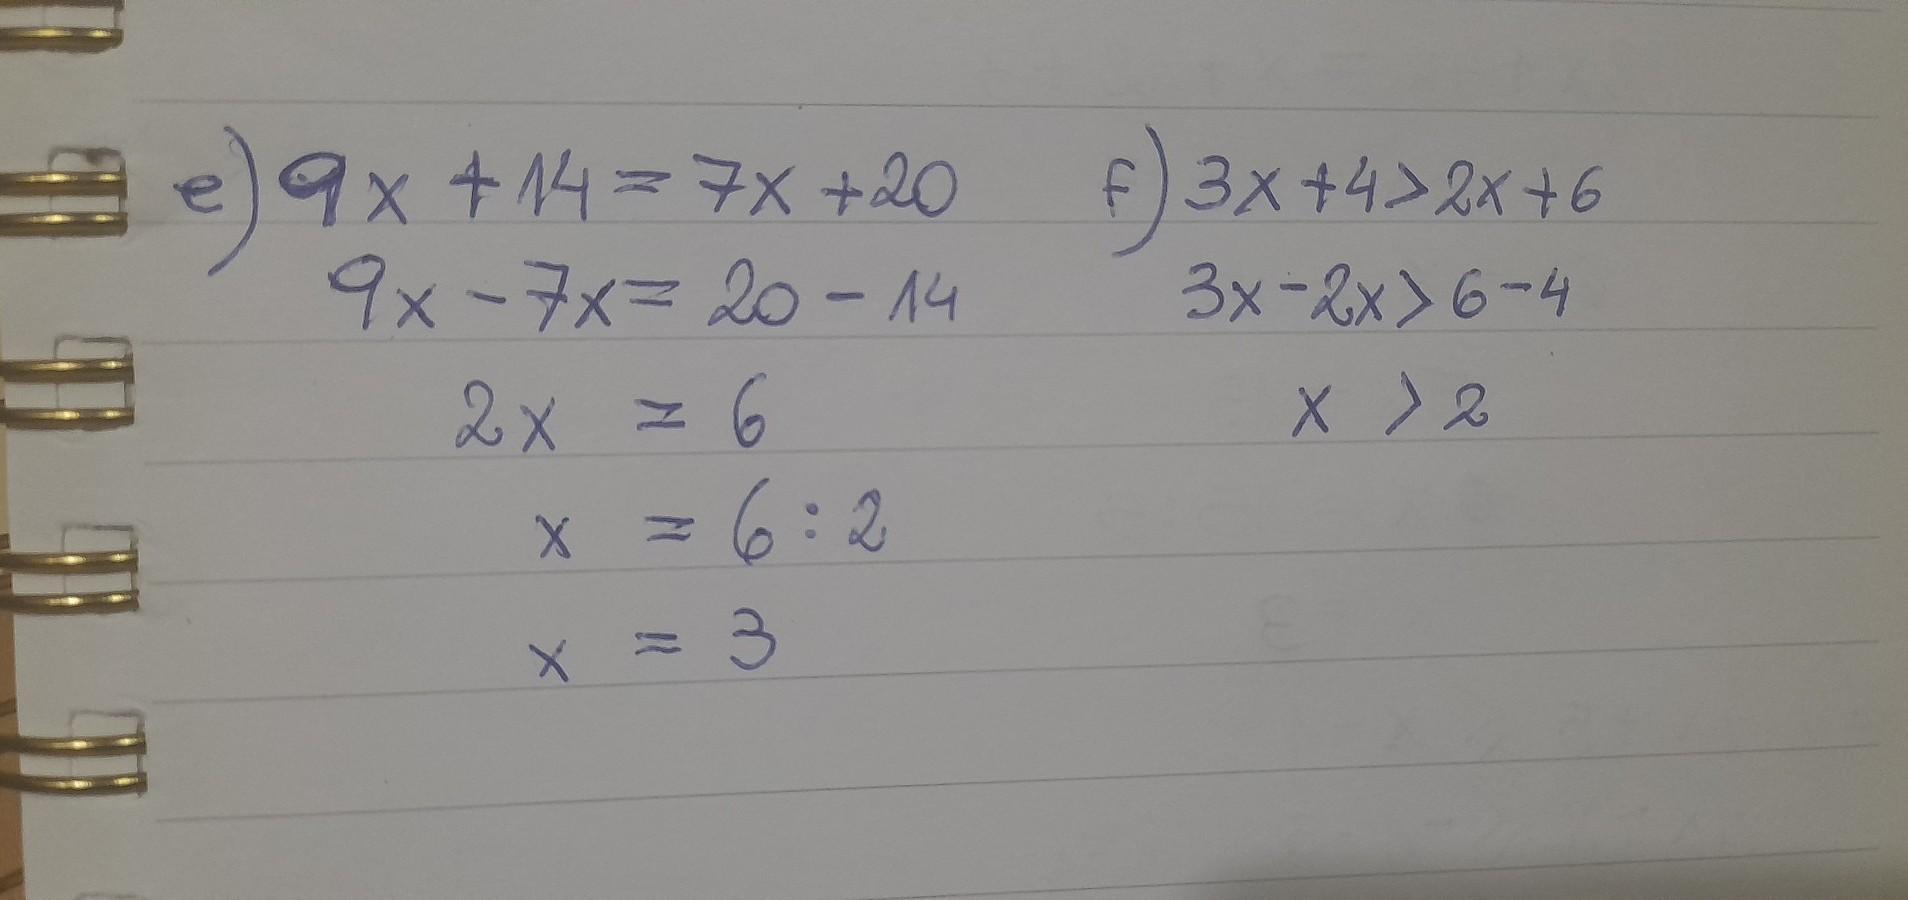 e) 9x + 14 = 7x + 20
9x - 7x = 20 - 14
2x = 6
x = 6 : 2
x = 3
f) 3x + 4 > 2x + 6
3x - 2x > 6 - 4
x > 2